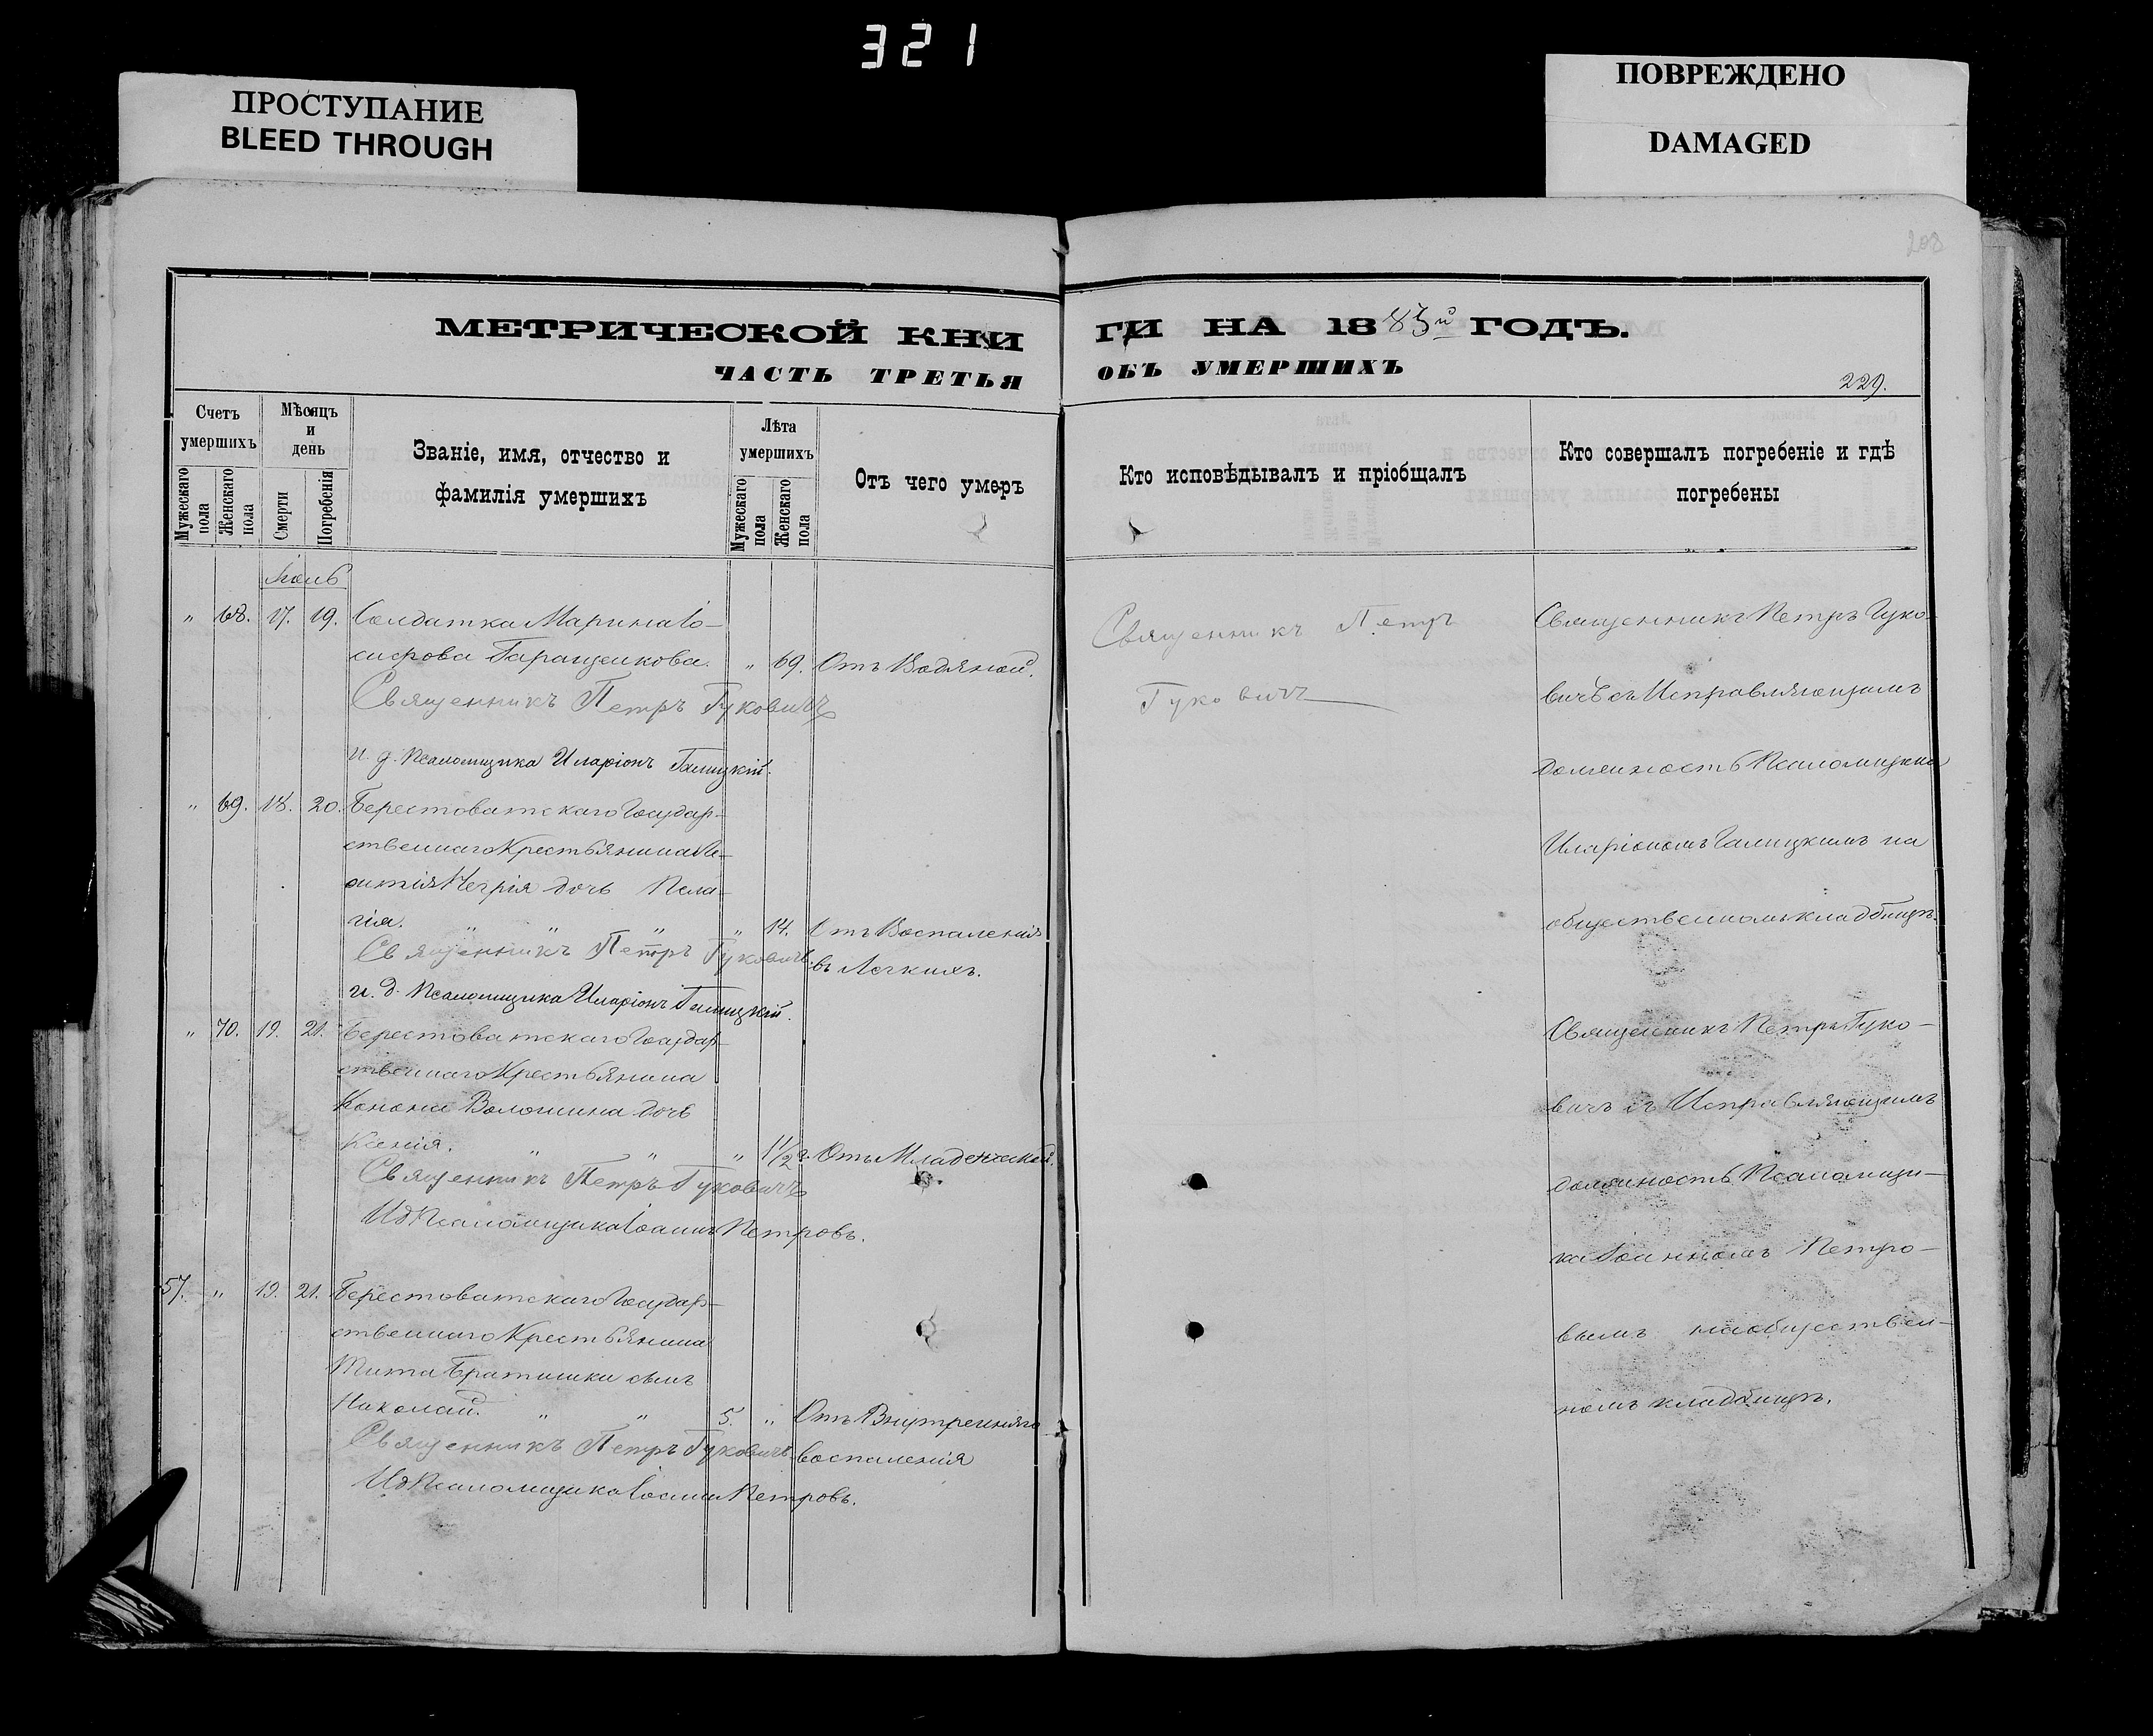 321
ПРОСТУПАНИЕ
BLEED THROUGH
ПОВРЕЖДЕНО
DAMAGED
208
МЕТРИЧЕСКОЙ КНИ
ГИ НА 1885й ГОДЪ.
ЧАСТЬ ТРЕТЬЯ
ОБЪ УМЕРШИХЪ
229.
Счетъ умершихъ
Мужескаго пола
Женскаго пола
Мѣсяцъ и день
Смерти
Погребенія
Званіе, имя, отчество и
фамилія умершихъ
Лѣта умершихъ
Мужескаго пола
Женскаго пола
Отъ чего умеръ
Кто исповѣдывалъ и пріобщалъ
Кто совершалъ погребеніе и гдѣ
погребены
" 68. 17. 19. Солдатка Марина Іо-
сифова " 69. Отъ Водяной.
Священникъ Петръ Гуковичъ
и. д. Псаломщика Иларіонъ Галицкій.
" 69. 18. 20. Берестоватскаго Государ-
ственнаго Крестьянина
дочь Пела-
гія. " " " " 14. Отъ Воспаленія
Священникъ Петръ Гуковичъ въ Легкихъ.
и. д. Псаломщика Иларіонъ Галицкій.
" 70. 19. 21. Берестоватскаго Государ-
ственнаго Крестьянина
Конона Волошина дочь
Ксенія. " " " 1 1/2 г. Отъ Младенческой.
Священникъ Петръ Гуковичъ
Ид Псаломщика Іоаннъ Петровъ.
57. " 19. 21. Берестоватскаго Государ-
ственнаго Крестьянина
Тита Братишки сынъ
Николай. " " 5. " Отъ Внутренняго
Священникъ Петръ Гуковичъ воспаленія
Ид Псаломщика Іоаннъ Петровъ.
Священникъ Петръ
Гуковичъ
Священникъ Петръ Гуко-
вичъ съ Исправляющимъ
должность Псаломщика
Иларіономъ Галицкимъ на
общественномъ кладбищѣ.
Священникъ Петръ Гуко-
вичъ съ Исправляющимъ
должность Псаломщи-
ка Іоанномъ Петро-
вымъ на обществен-
номъ кладбищѣ.